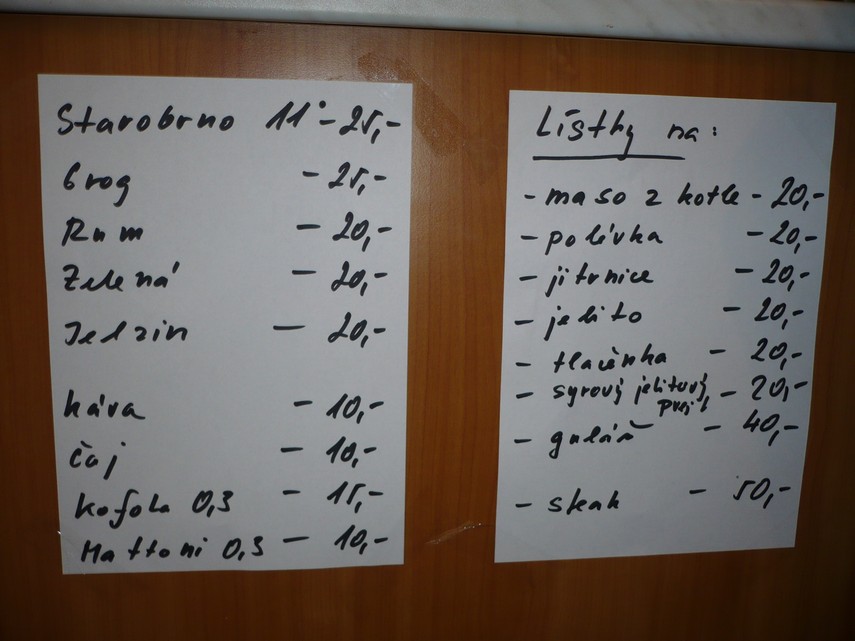 Starobrno 11° - 25,-
Grog - 25,-
Rum - 20,-
Zelená - 20,-
Jelzin - 20,-
káva - 10,-
čaj - 10,-
Kofola 0,3 - 15,-
Mattoni 0,3 - 10,-
Lístky na:
- maso z kotle - 20,-
- polívka - 20,-
- jitrnice - 20,-
- jelito - 20,-
- tlačenka - 20,-
- syrový jelitový - 20,-
- guláš - 40,-
- steak - 50,-